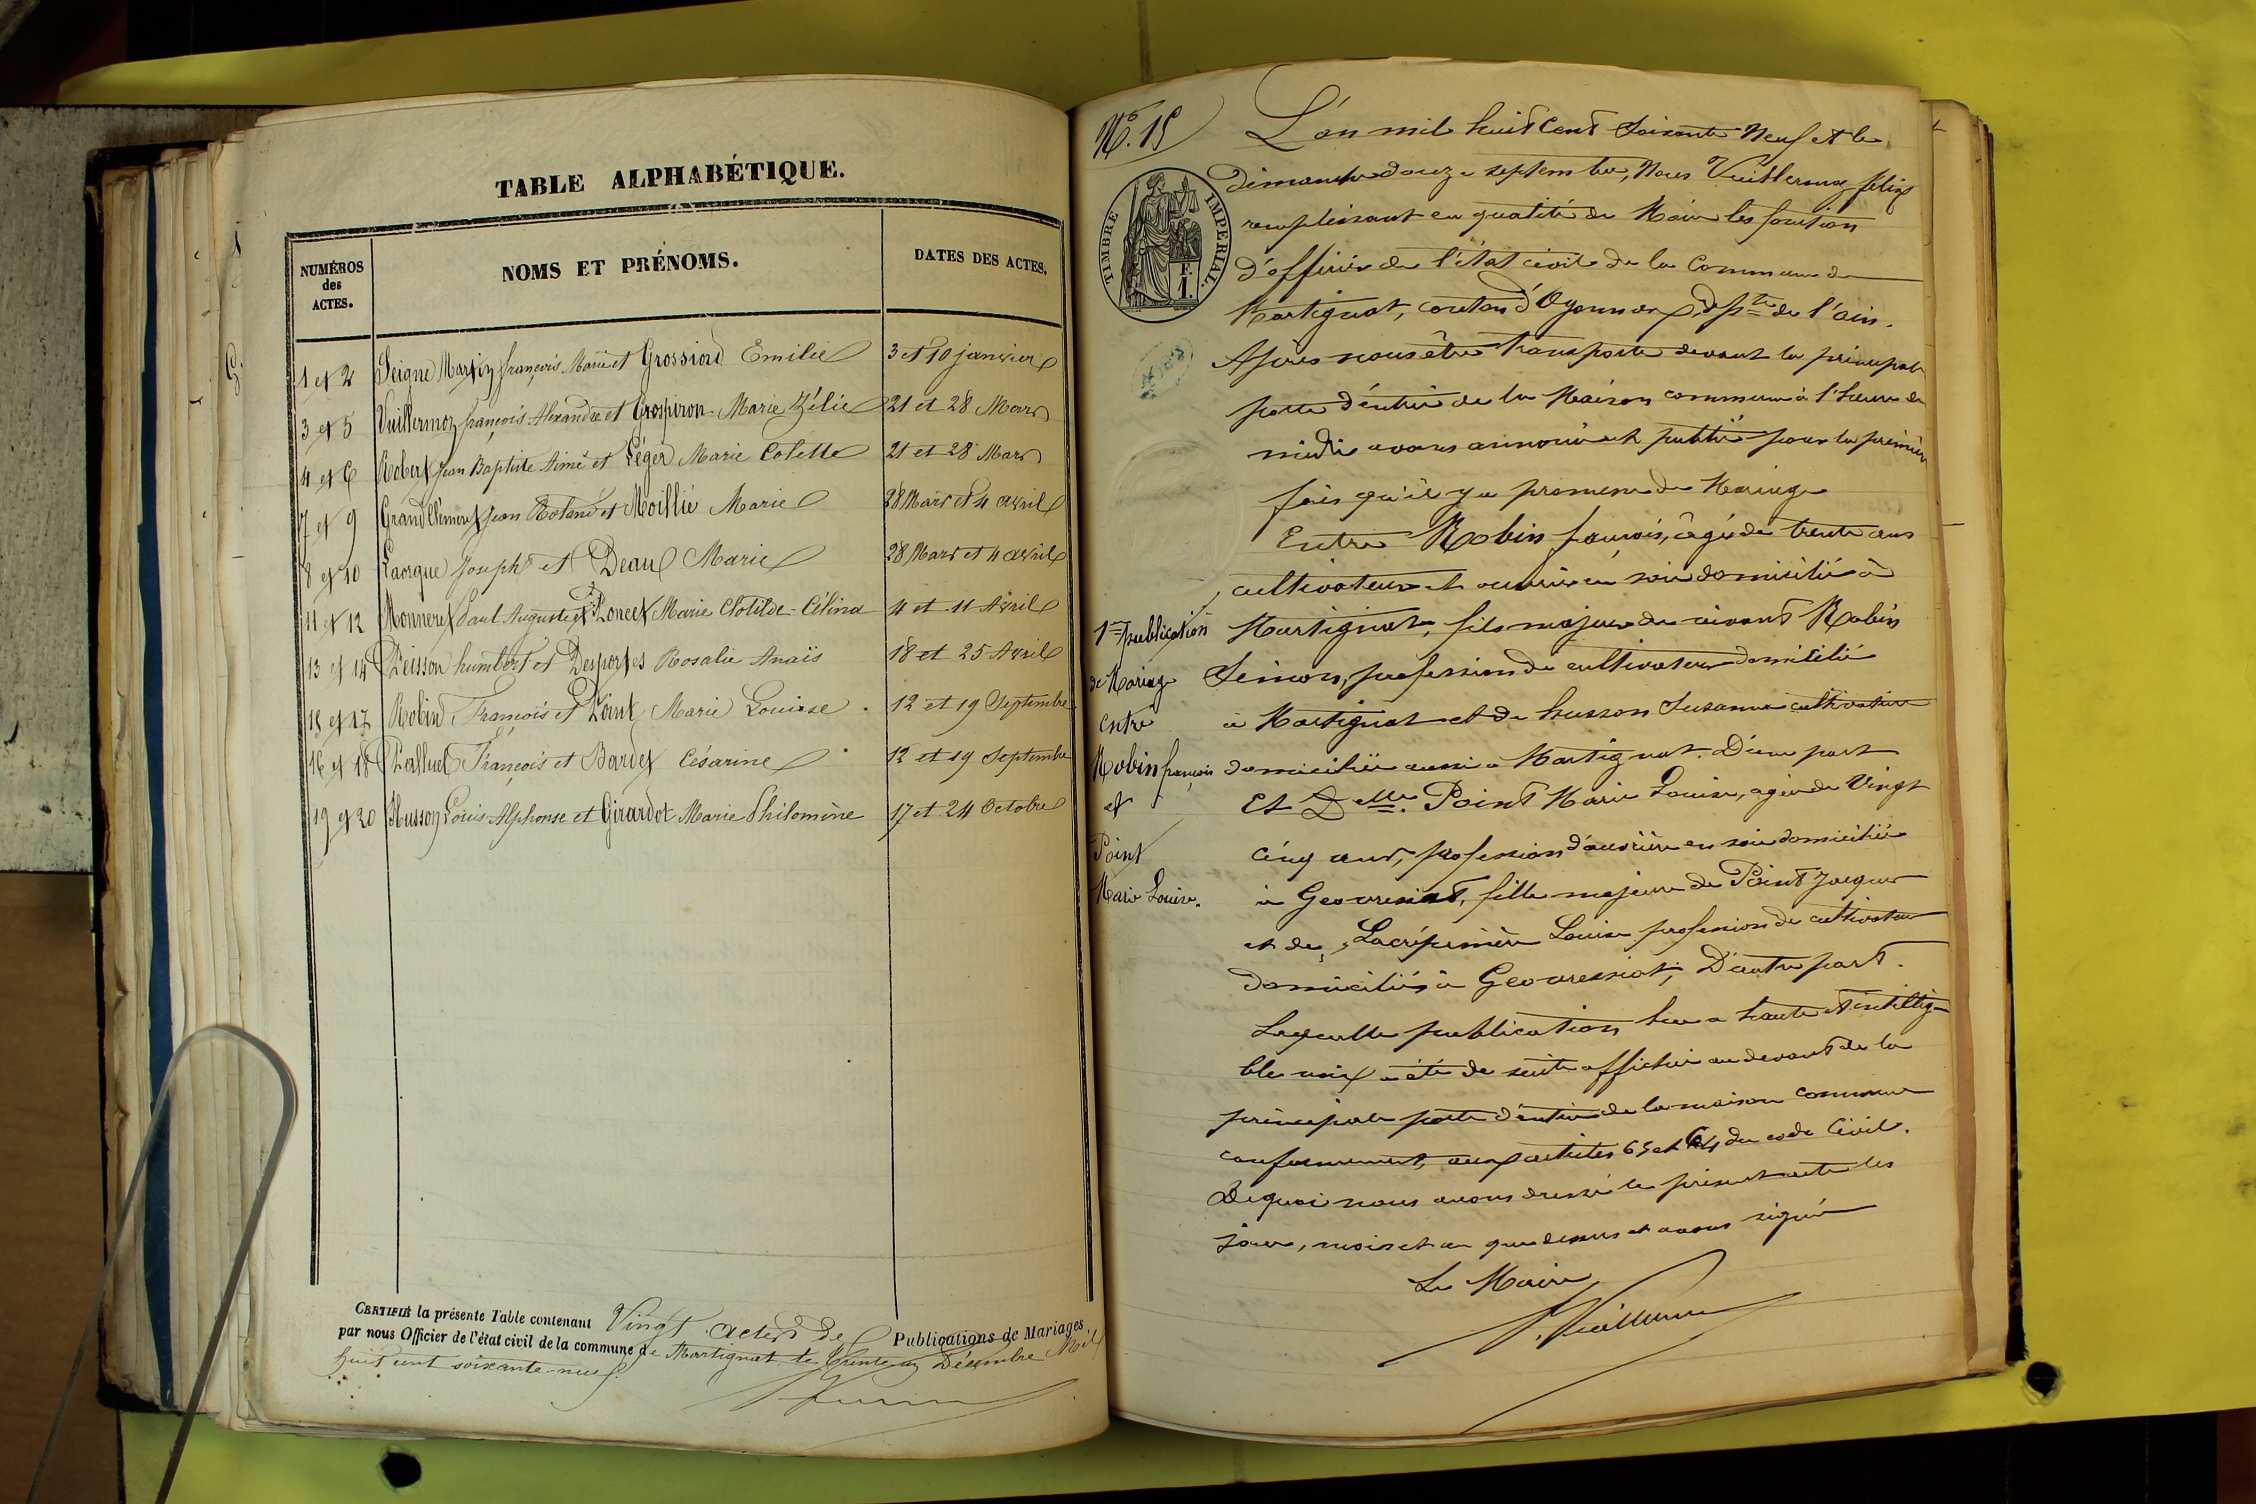 TABLE ALPHABÉTIQUE.
NUMÉROS des ACTES.
NOMS ET PRÉNOMS.
DATES DES ACTES.
1 et 2 Seigne Martin françois Marie et Grossiord Emilie 3 et 10 janvier
3 et 5 Vuillermoz françois Alexandre et Grospiron Marie Zélie 21 et 28 Mars
4 et 6 Robert Jean Baptiste Aimé et Léger Marie Colette 21 et 28 Mars
7 et 9 Grand Clément Jean Roland et Moillié Marie 28 Mars et 4 avril
8 et 10 Joseph et Deau Marie 28 Mars et 4 avril
11 et 12 Monneret Paul Auguste et Poncet Marie Clotilde-Célina 4 et 11 Avril
13 et 14 humbert et Desportes Rosalie Anaïs 18 et 25 Avril
15 et 17 Robin François et Point Marie Louise. 12 et 19 Septembre
16 et 18 François et Bardet Césarine 12 et 19 Septembre
19 et 20 Husson Louis Alphonse et Girardot Marie Philomène 17 et 24 Octobre
CERTIFIÉ la présente Table contenant Vingt actes de Publications de Mariages
par nous Officier de l'état civil de la commune de Martignat le trente un Décembre Mil
huit cent soixante-neuf.
No. 15
TIMBRE IMPERIAL.
L'an mil huit cent soixante neuf et le
dimanche douze septembre, Nous Vuillermoz félix
remplissant en qualité de Maire les fonction
d'officier de l'état civil de la Commune de
Martignat, canton d'Oyonnax, dépt de l'ain.
Après nous être transporté devant la principale
porte d'entrée de la Maison commune à l'heure de
midi avons annoncé et publié pour la première
fois qu'il y a promesse de Mariage
Entre Robin françois, âgé de trente ans
cultivateur et ouvrier en soie domicilié à
Martignat, fils majeur de vivant Robin
Simon, profession de cultivateur domicilié
à Martignat et de husson Susanne cultivatrice
domiciliée aussi à Martignat. D'une part
Et Delle. Point Marie Louise, agée de Vingt
cinq ans, profession d'ouvrière en soie domiciliée
à Geovresiat, fille majeure de Point Jacques
et de Lacrépinière Louise profession de cultivateur
domiciliés à Geovressiat, D'autre part.
1re publication
de Mariage
entre
Robin françois
et
Point
Marie Louise.
Laquelle publication lue a haute et intelligi-
ble voix a été de suite affichée au devant de la
principale porte d'entrée de la maison commune
conformément aux articles 63 et 64 du code Civil.
De quoi nous avons dressé le présent acte les
jour, mois et an que dessus et avons signé
Le Maire